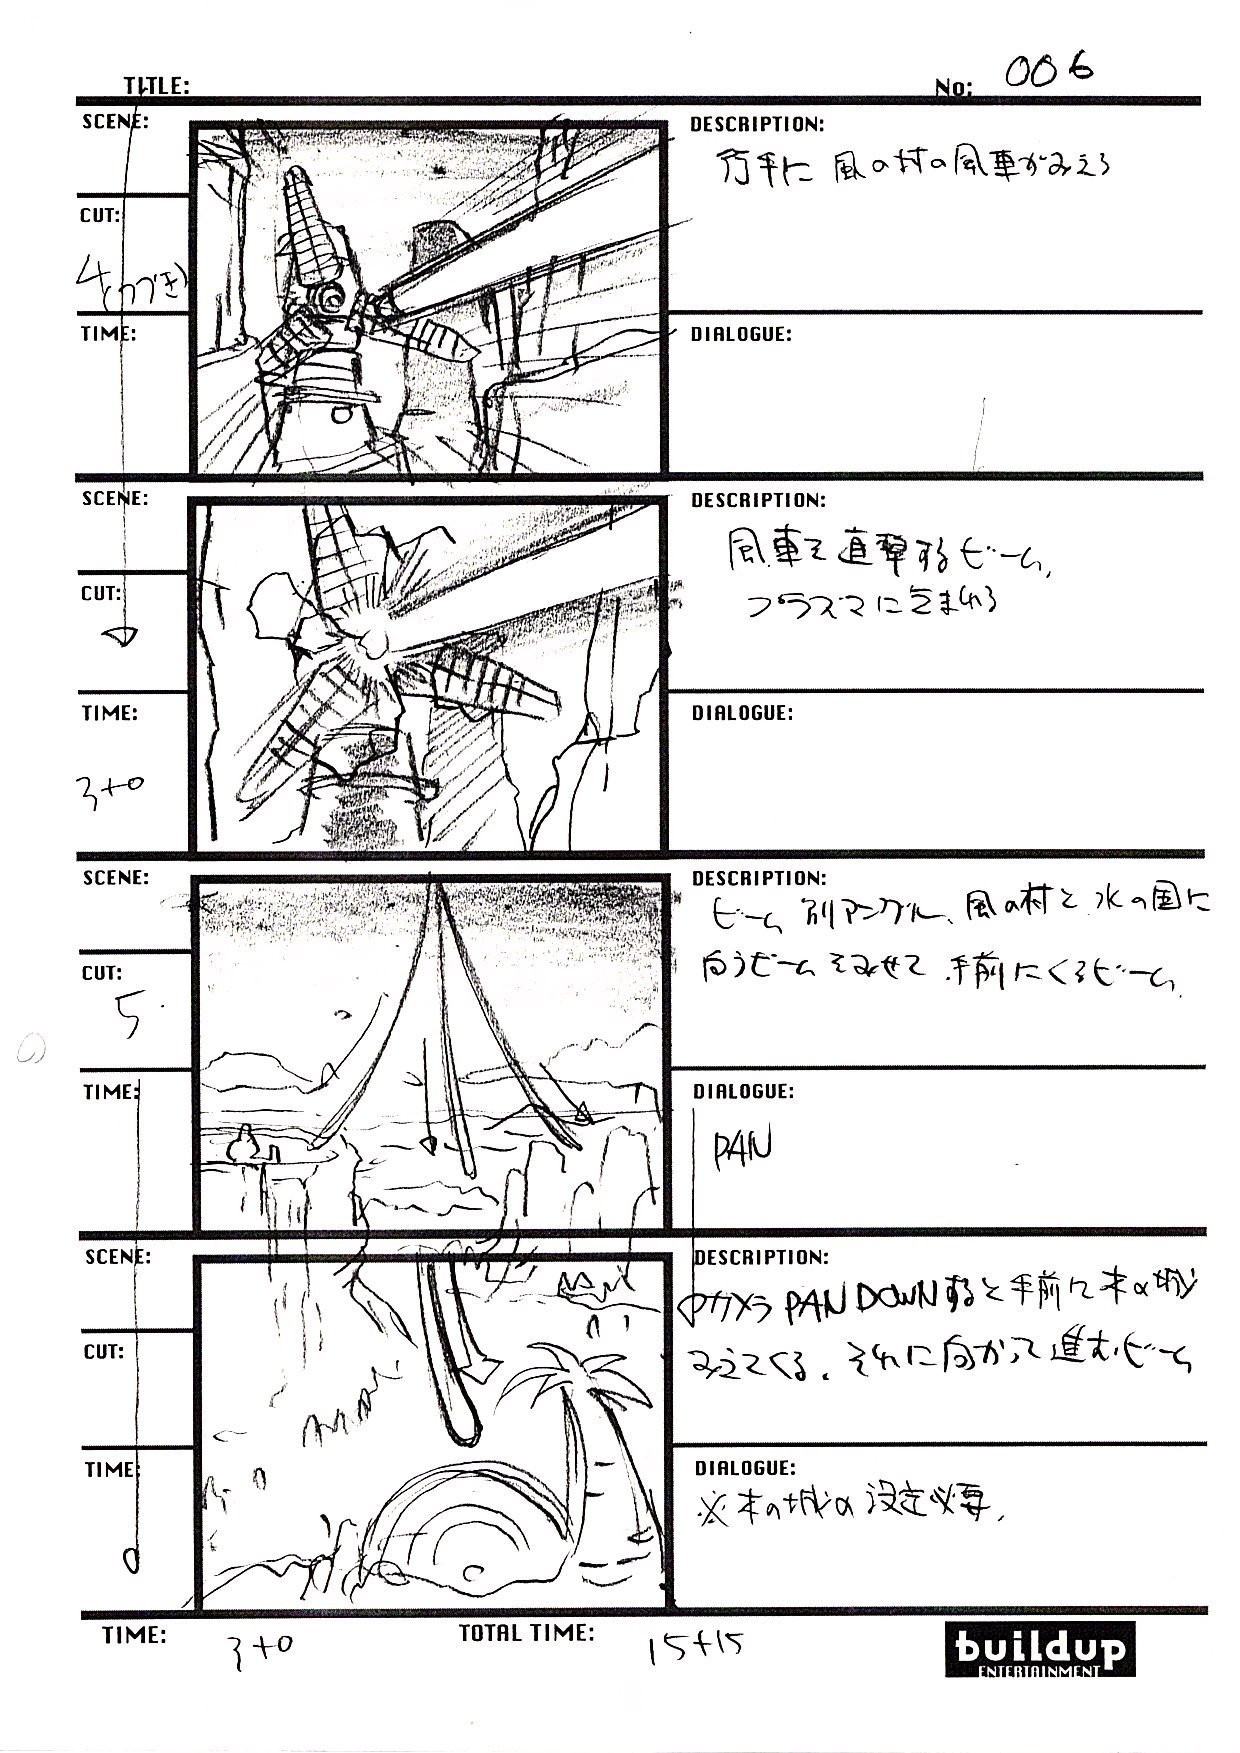 TITLE:
No: 006
SCENE:
CUT:
4(つづき)
TIME:
DESCRIPTION:
行手に 風の村の風車がみえる
DIALOGUE:
SCENE:
CUT:
TIME:
3+0
DESCRIPTION:
風車を直撃するビーム,
プラズマに包まれる
DIALOGUE:
SCENE:
CUT:
5
TIME:
DESCRIPTION:
ビーム 別アングル、風の村と水の国に
向うビームをみせて 手前にくるビーム
DIALOGUE:
PAN
SCENE:
CUT:
TIME:
DESCRIPTION:
カメラ PAN DOWNすると手前に木の城が
みえてくる. それに向かって進むビーム
DIALOGUE:
※木の城の設定必要.
TIME: 3+0
TOTAL TIME: 15+15
buildup
ENTERTAINMENT